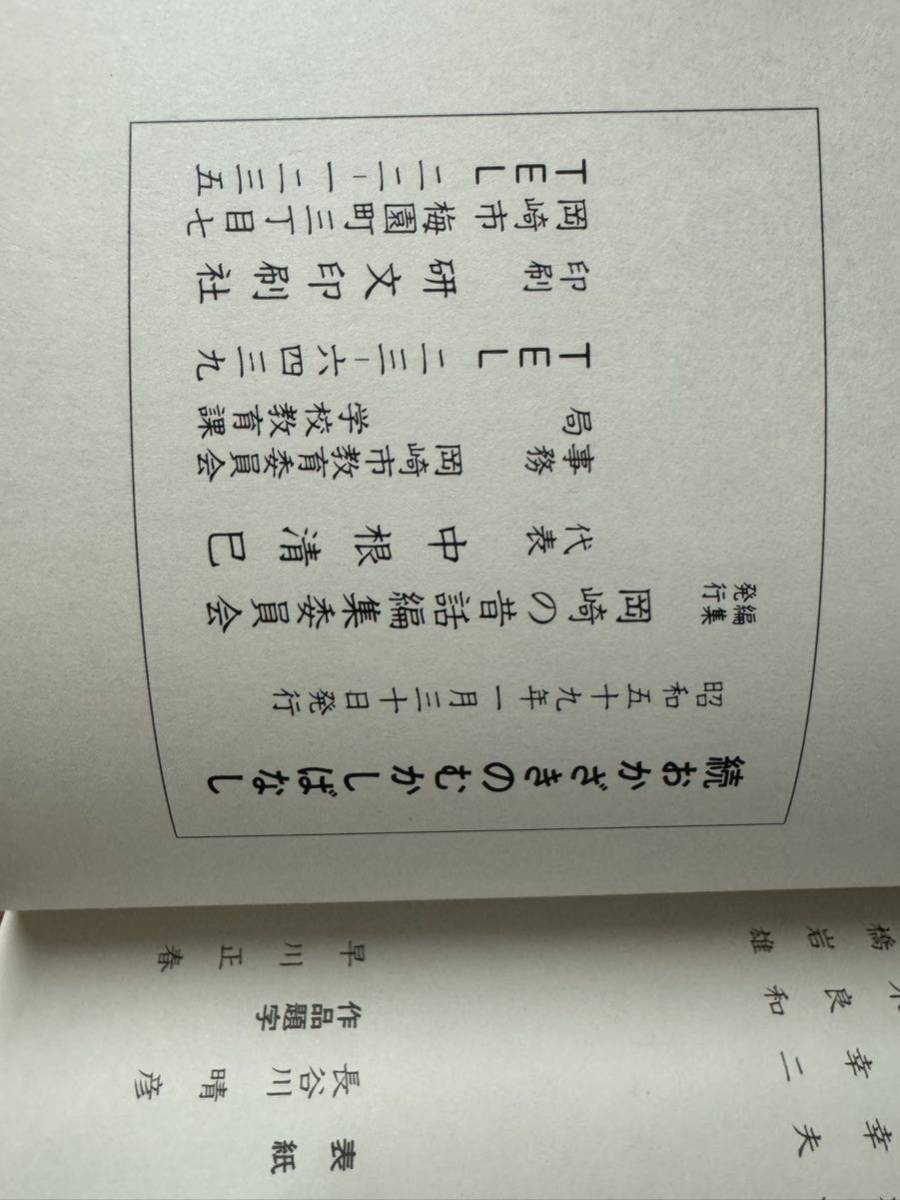 幸夫
幸二
良和
橋岩雄
表紙
長谷川晴彦
作品題字
早川正春
続おかざきのむかしばなし
昭和五十九年一月三十日発行
編集
発行
岡崎の昔話編集委員会
代表 中根清巳
事務局 岡崎市教育委員会
学校教育課
TEL 二三―六四三九
印刷 研文印刷社
岡崎市梅園町三丁目七
TEL 二二―一二三五